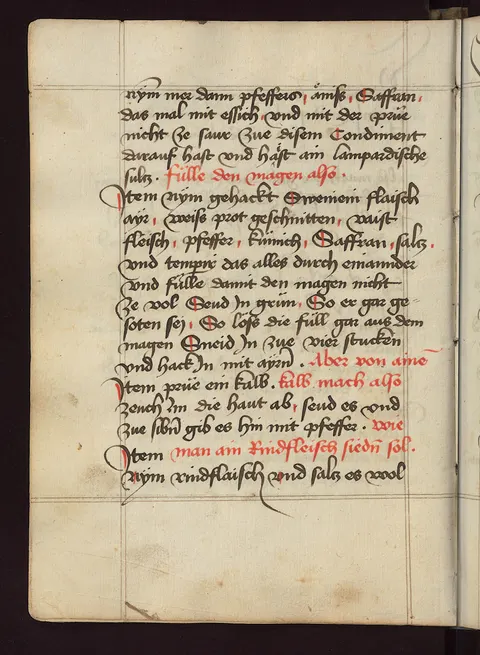 nym mer dann pfeffers, ämss, Saffran,
das mal mit essich und mit der prüe
nicht ze saur zue disem Condiment
darauf hast und häst ain lampardische
sultz. fülle den magen also.
Item nym gehackt Sweinein flaisch
ayr, weiss prot geschnitten, vaist
fleisch, pfeffer, kümich, Saffran, saltz.
und temperir das alles durch einannder
und fülle damit den magen nicht
ze vol Seud In grün, So er gar ge-
soten sej, So löss die füll gar aus dem
magen Sneid In zue vier stucken
und hack In mit ayrn. Aber von ainē
Item prüe ein kalb. kalb mach also
zeuch Im die haut ab, seud es und
zue gib es hin mit pfeffer. wie
Item man ain Rindfleisch siedn sol.
Nym rindflaisch und saltz es wol